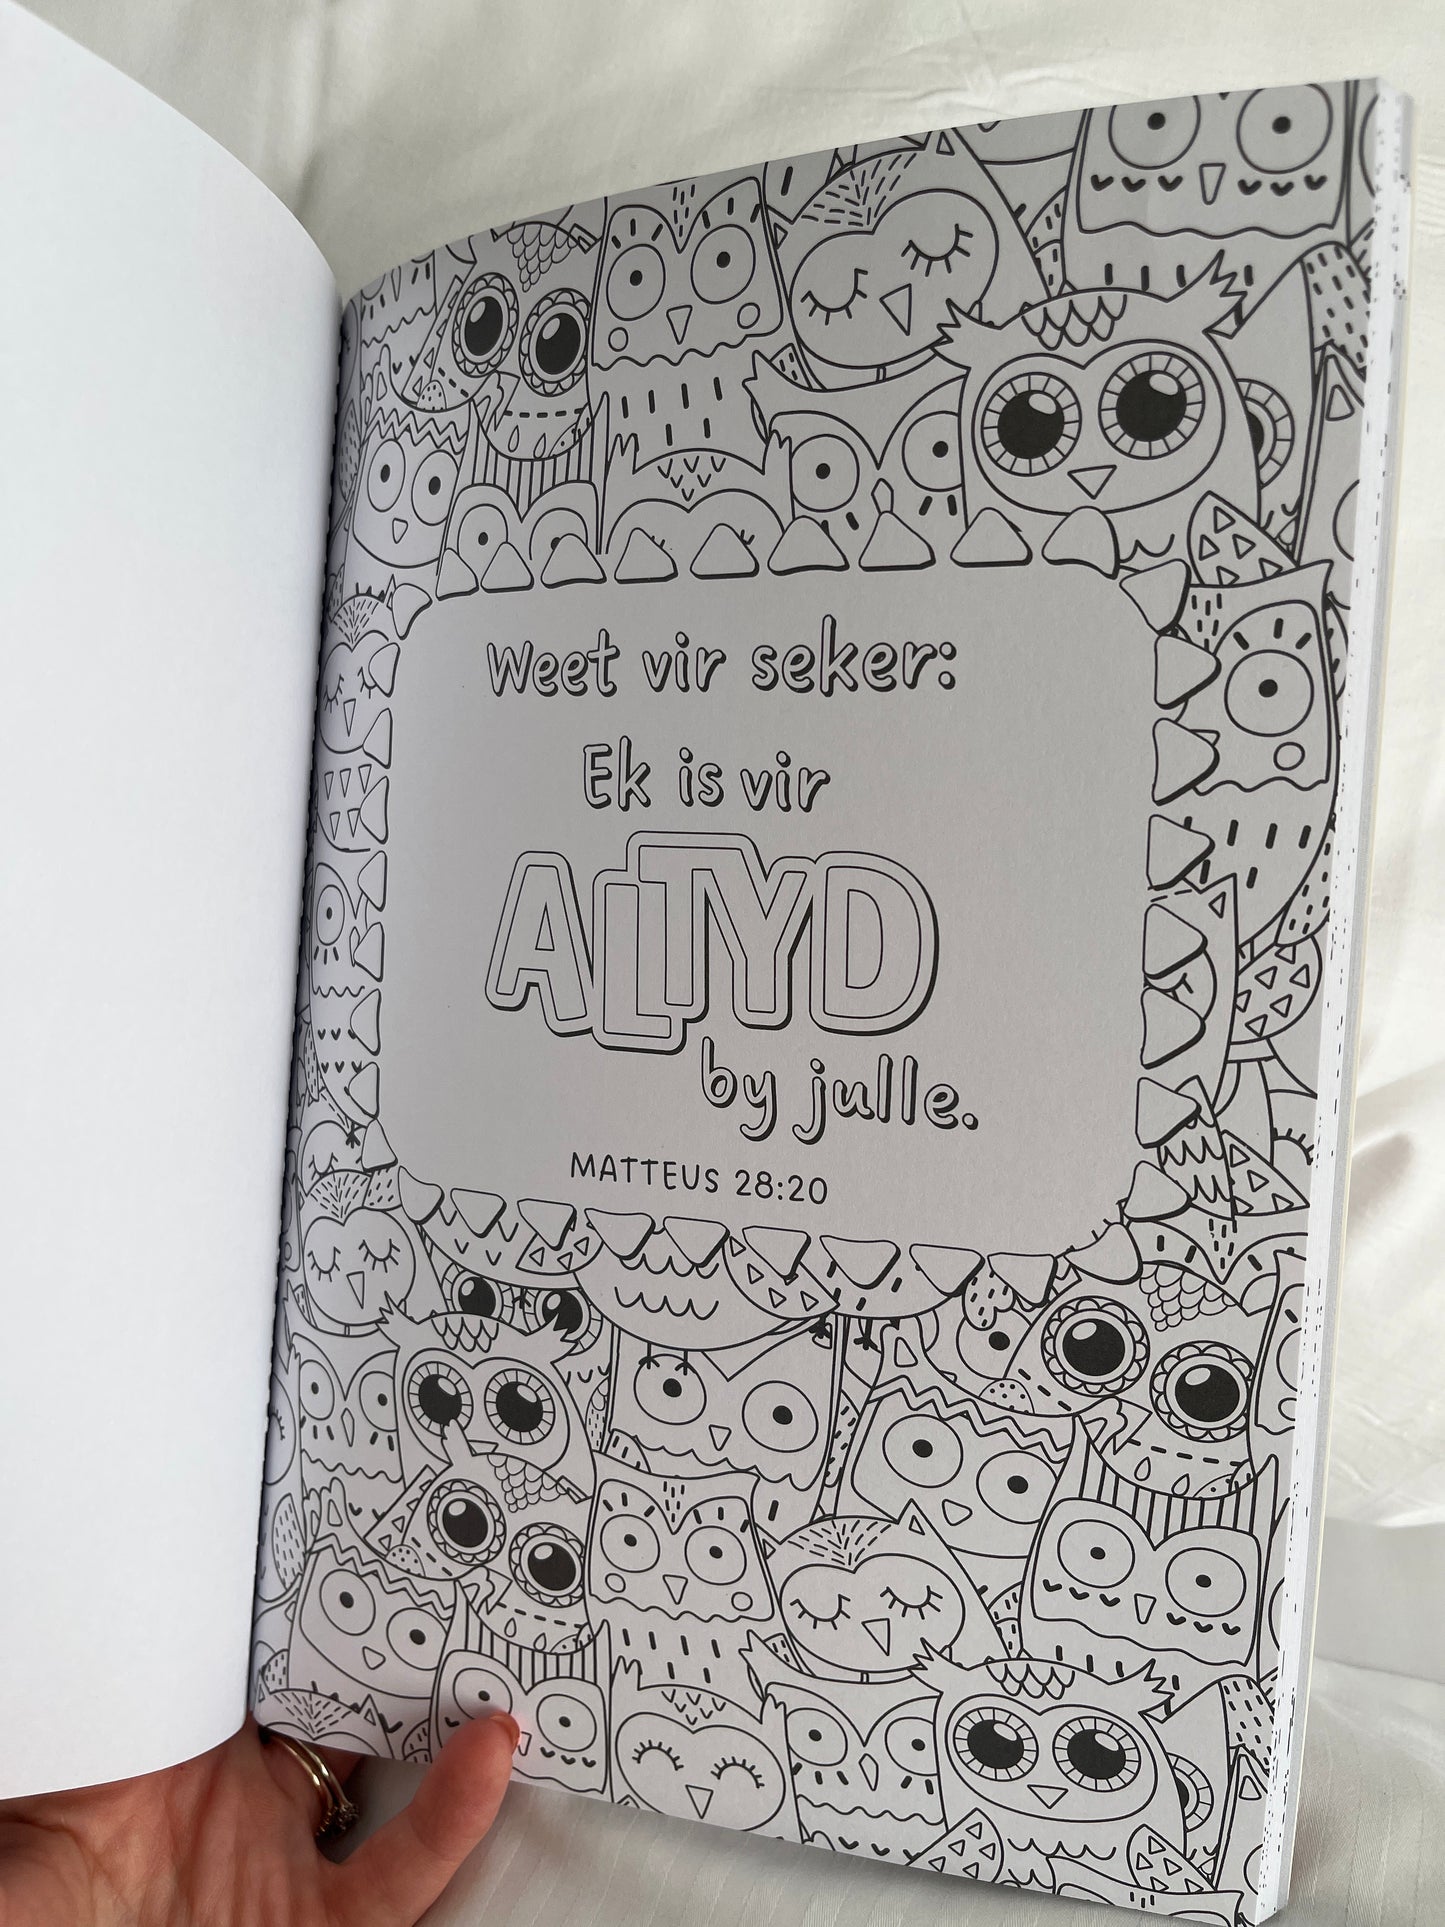 Weet vir seker:
Ek is vir
ALTYD
by julle.
MATTEUS 28:20